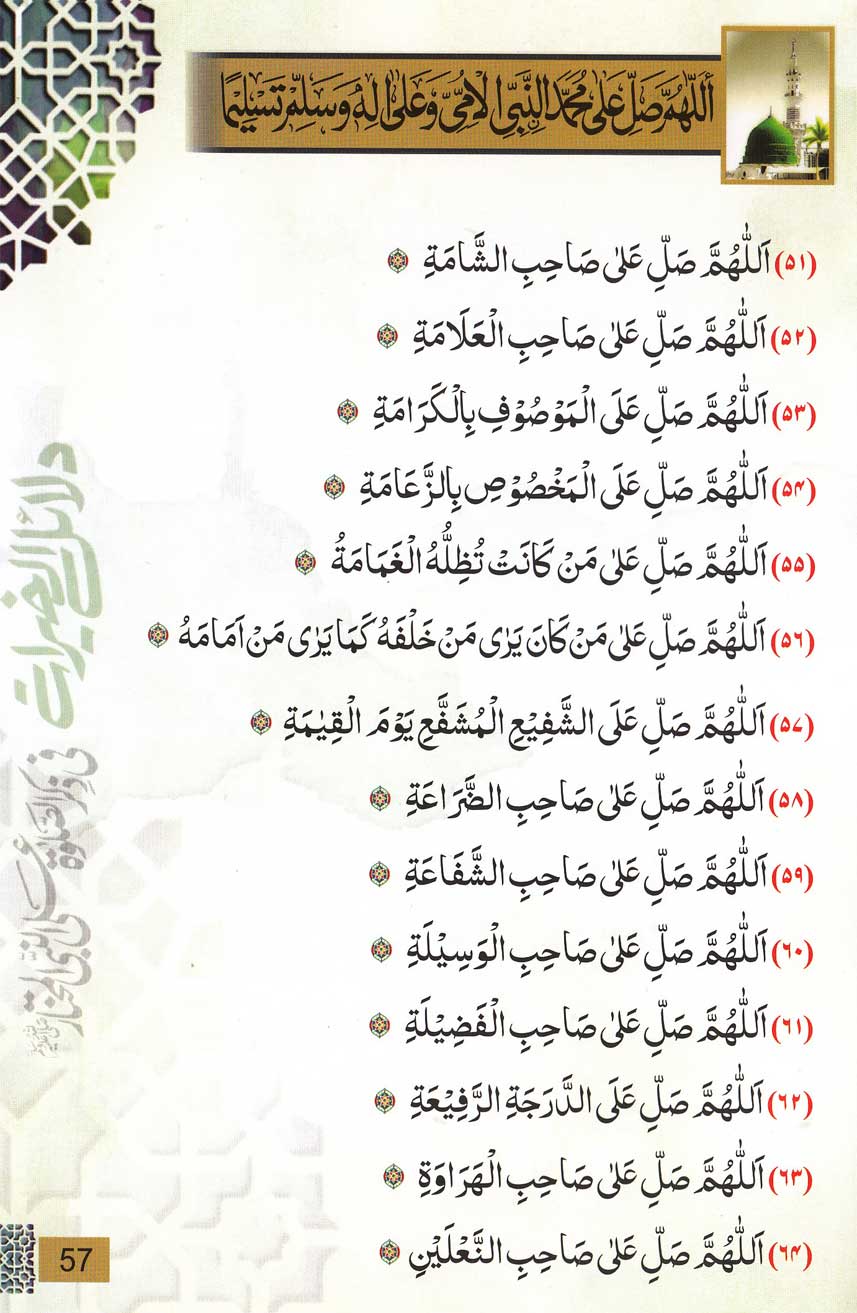 اَللّٰهُمَّ صَلِّ عَلٰی مُحَمَّدِ النَّبِیِّ الْاُمِّیِّ وَعَلٰی اٰلِهٖ وَسَلِّمْ تَسْلِیْمًا
(۵۱) اَللّٰهُمَّ صَلِّ عَلٰی صَاحِبِ الشَّامَةِ
(۵۲) اَللّٰهُمَّ صَلِّ عَلٰی صَاحِبِ الْعَلَامَةِ
(۵۳) اَللّٰهُمَّ صَلِّ عَلَی الْمَوْصُوْفِ بِالْكَرَامَةِ
(۵۴) اَللّٰهُمَّ صَلِّ عَلَی الْمَخْصُوْصِ بِالزَّعَامَةِ
(۵۵) اَللّٰهُمَّ صَلِّ عَلٰی مَنْ كَانَتْ تُظِلُّهُ الْغَمَامَةُ
(۵۶) اَللّٰهُمَّ صَلِّ عَلٰی مَنْ كَانَ یَرٰی مَنْ خَلْفَهٗ كَمَا یَرٰی مَنْ اَمَامَهٗ
(۵۷) اَللّٰهُمَّ صَلِّ عَلَی الشَّفِیْعِ الْمُشَفَّعِ یَوْمَ الْقِیٰمَةِ
(۵۸) اَللّٰهُمَّ صَلِّ عَلٰی صَاحِبِ الضَّرَاعَةِ
(۵۹) اَللّٰهُمَّ صَلِّ عَلٰی صَاحِبِ الشَّفَاعَةِ
(۶۰) اَللّٰهُمَّ صَلِّ عَلٰی صَاحِبِ الْوَسِیْلَةِ
(۶۱) اَللّٰهُمَّ صَلِّ عَلٰی صَاحِبِ الْفَضِیْلَةِ
(۶۲) اَللّٰهُمَّ صَلِّ عَلَی الدَّرَجَةِ الرَّفِیْعَةِ
(۶۳) اَللّٰهُمَّ صَلِّ عَلٰی صَاحِبِ الْهَرَاوَةِ
(۶۴) اَللّٰهُمَّ صَلِّ عَلٰی صَاحِبِ النَّعْلَیْنِ
دلائل الخیرات
فی ذکر الصلوٰة علی النبی المختار
57